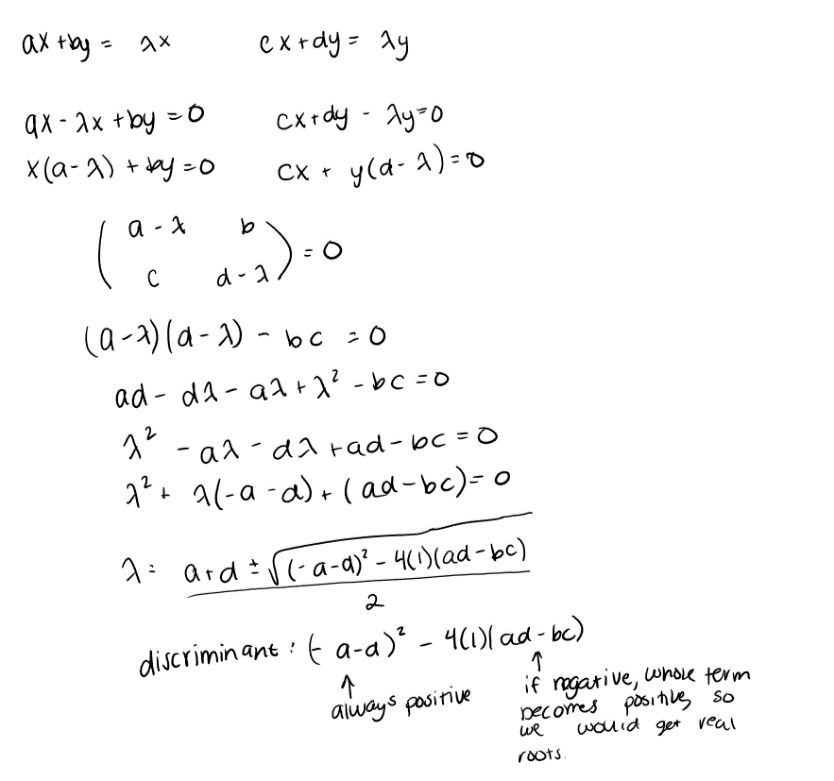 ax + by = λx    cx + dy = λy
ax - λx + by = 0    cx + dy - λy = 0
x(a - λ) + by = 0    cx + y(d - λ) = 0
( a - λ    b
c    d - λ ) = 0
(a - λ)(d - λ) - bc = 0
ad - dλ - aλ + λ² - bc = 0
λ² - aλ - dλ + ad - bc = 0
λ² + λ(-a - d) + (ad - bc) = 0
λ = a + d ± √(-a - d)² - 4(1)(ad - bc)
2
discriminant : (- a - d)² - 4(1)(ad - bc)
↑ always positive
↑ if negative, whole term
becomes positive, so
we would get real
roots.